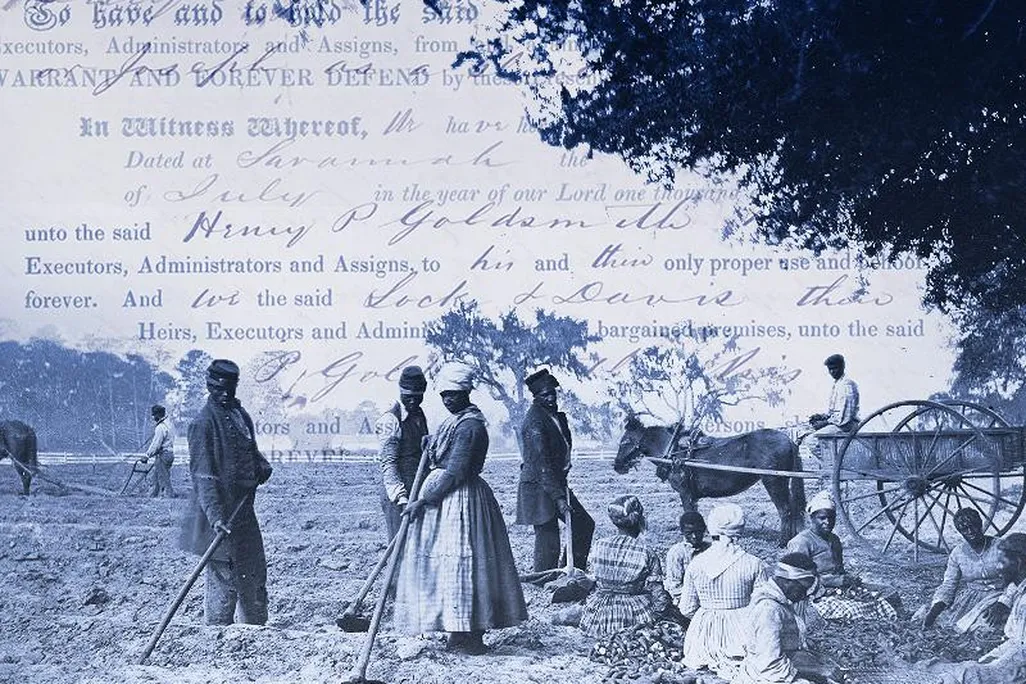 To have and to hold the said
Executors, Administrators and Assigns, from
or Joseph as a
WARRANT AND FOREVER DEFEND by these
In Witness Whereof, We have h
Dated at Savannah the
of July in the year of our Lord one thousand
unto the said Henry P Goldsmith
Executors, Administrators and Assigns, to his and their only proper use and behoof
forever. And we the said Lock & Davis their
Heirs, Executors and Admini bargained premises, unto the said
P, Gol his
tors and Ass ersons
REVER